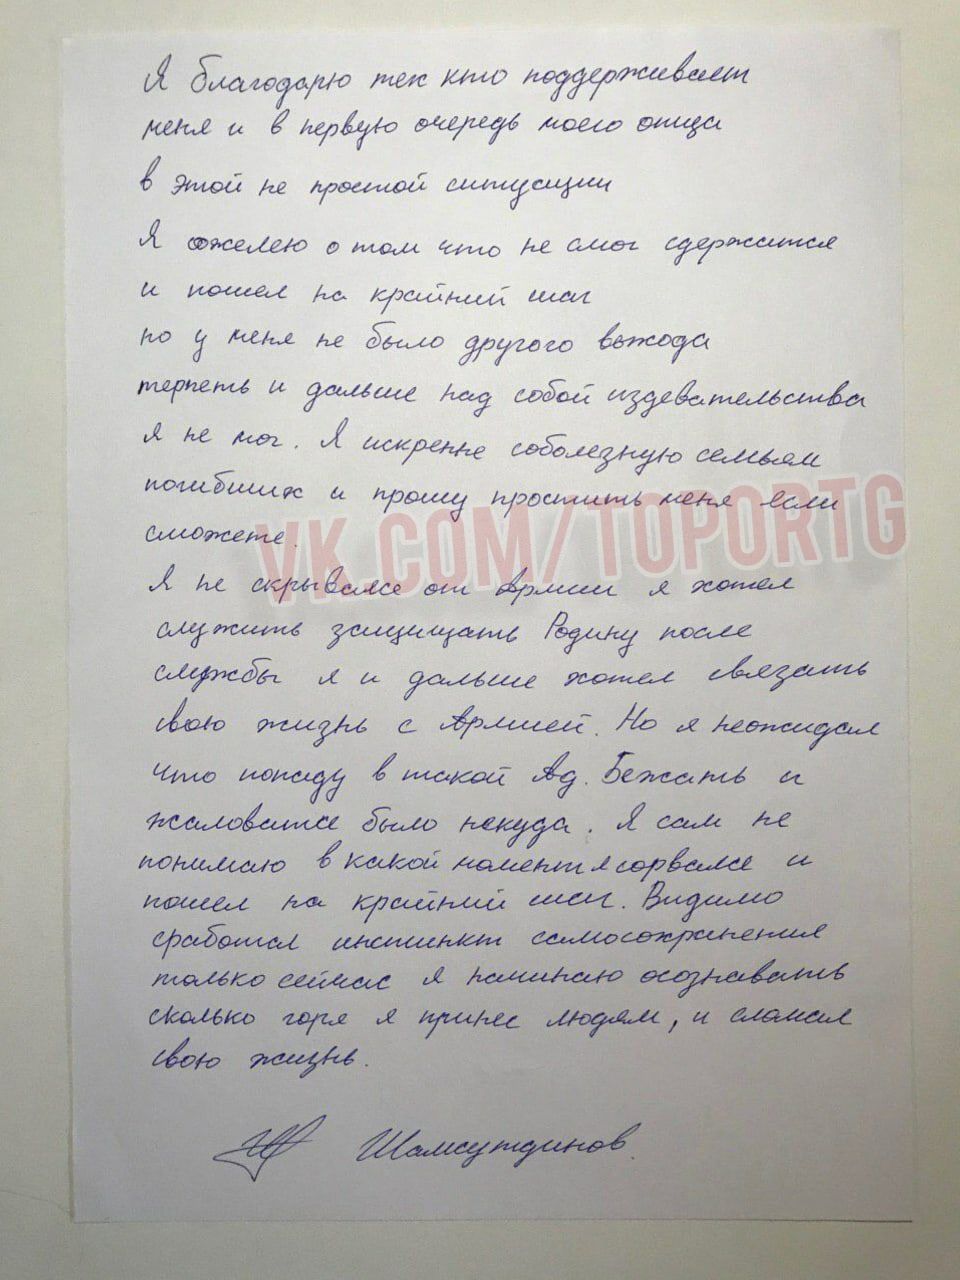 Я благодарю тех кто поддерживает
меня и в первую очередь моего отца
в этой не простой ситуации
Я сожелею о том что не смог сдержатся
и пошел на крайний шаг
но у меня не было другого выхода
терпеть и дальше над собой издевательства
я не мог. Я искренне соболезную семьям
погибших и прошу простить меня если
сможете.
VK.COM/TOPORTG
Я не скрывался от Армии я хотел
служить защищать Родину после
службы я и дальше хотел связать
свою жизнь с Армией. Но я неожидал
что попаду в такой Ад. Бежать и
жаловатся было некуда. Я сам не
понимаю в какой момент я сорвался и
пошел на крайний шаг. Видимо
сработал инстинкт самосохранения
только сейчас я начинаю осознавать
сколько горя я принес людям, и сломал
свою жизнь.
Шамсутдинов